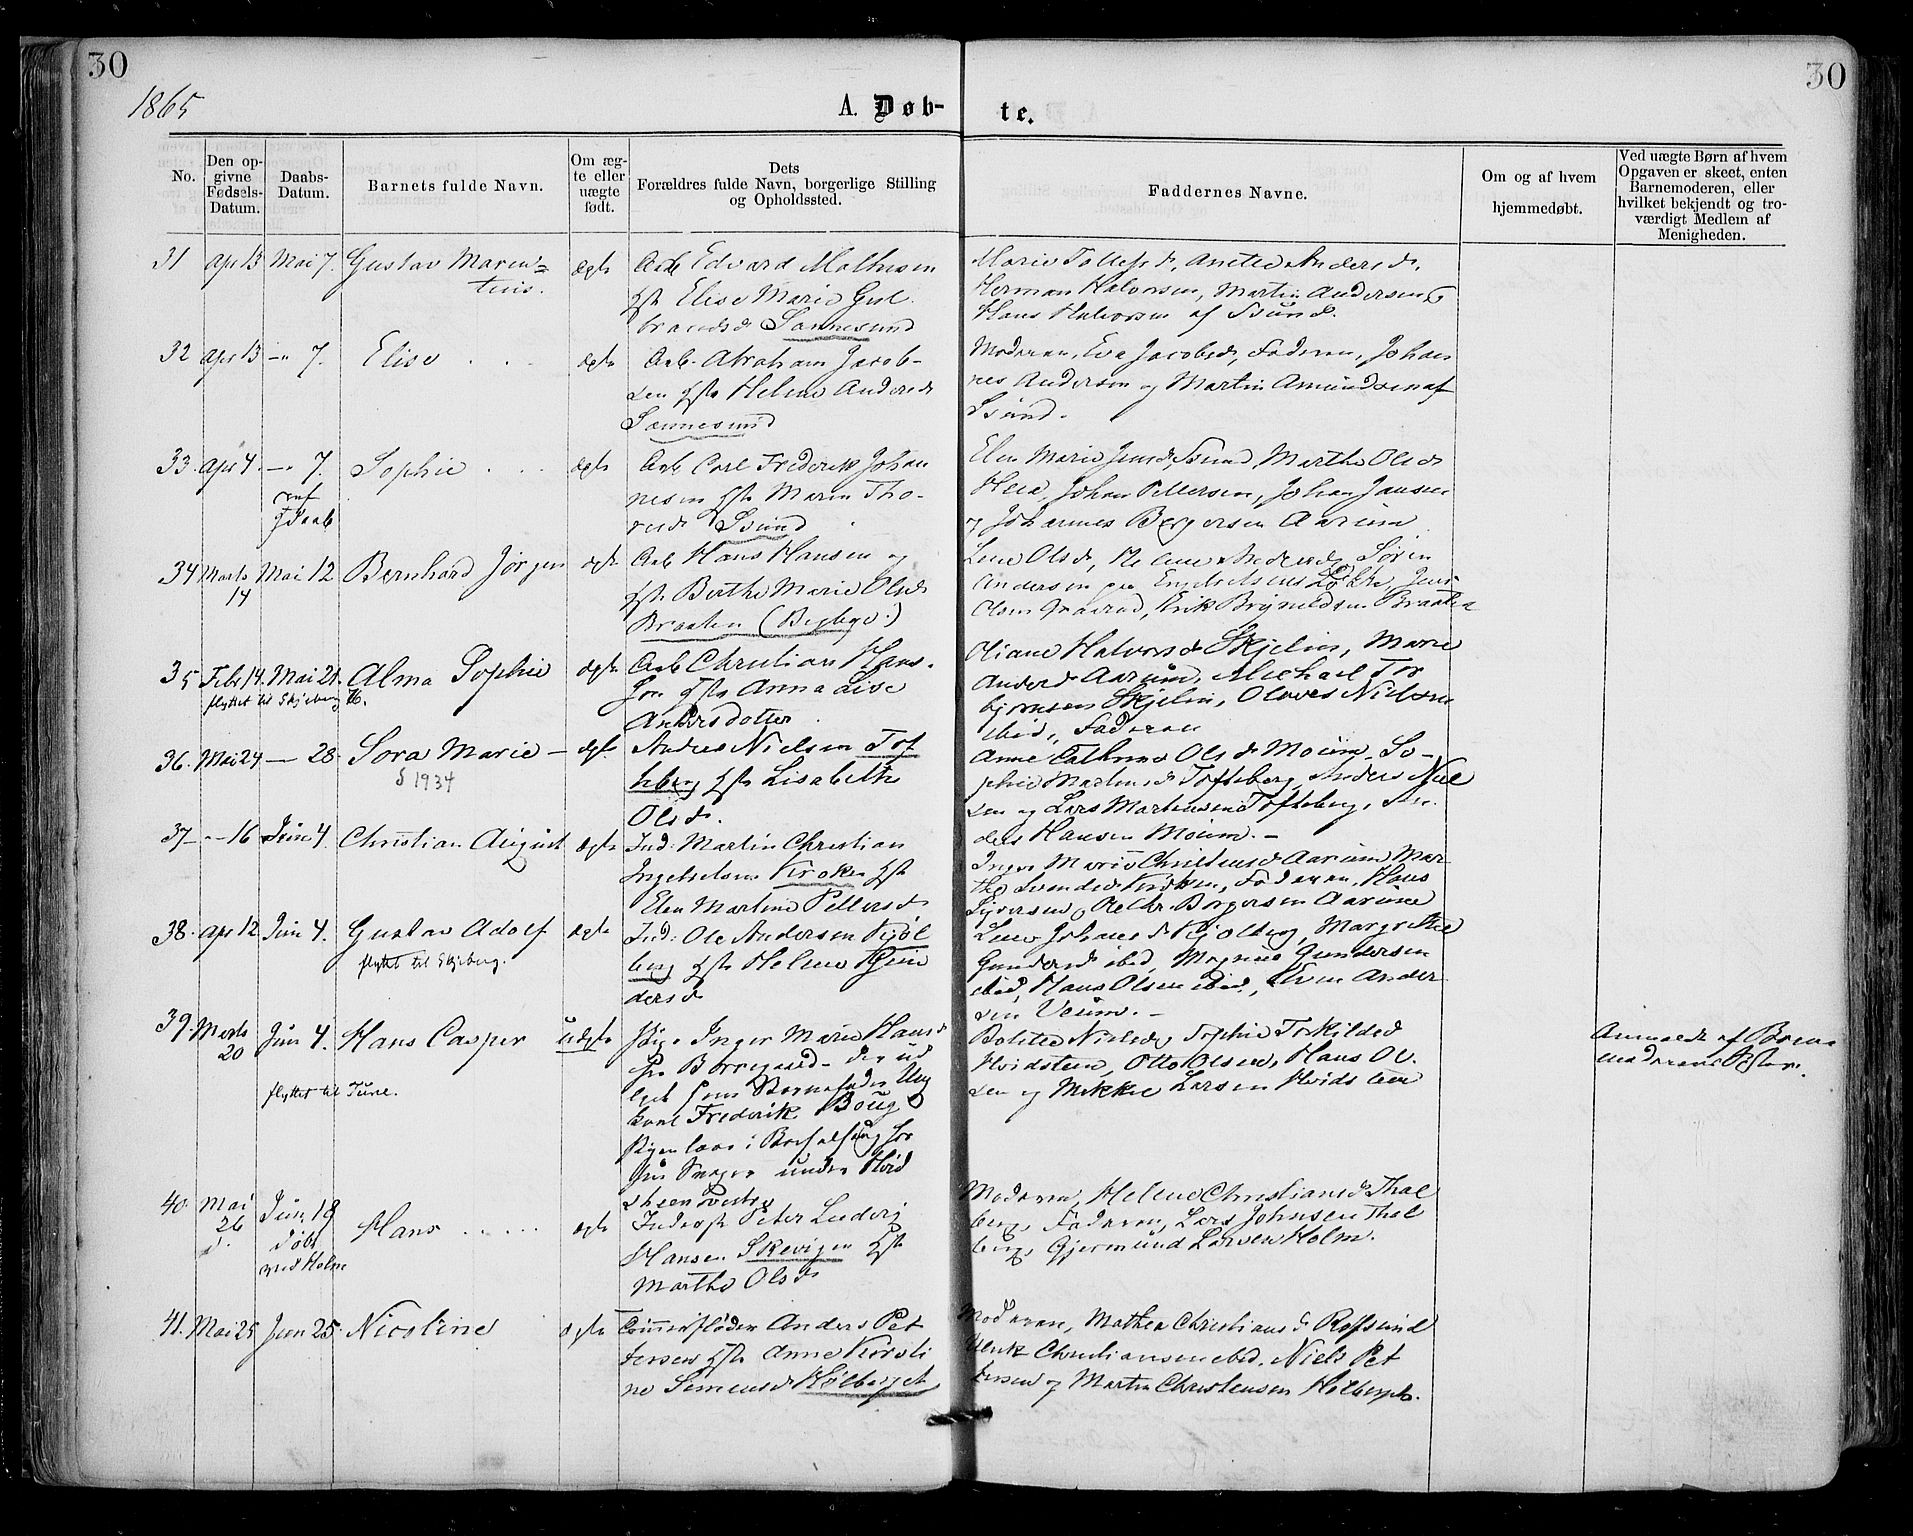 30
30
1865
A. Døb-
te.
No.
Den op-
givne
Fødsels-
Datum.
Daabs-
Datum.
Barnets fulde Navn.
Om æg-
te eller
uægte
født.
Dets
Forældres fulde Navn, borgerlige Stilling
og Opholdssted.
Faddernes Navne.
Om og af hvem
hjemmedøbt.
Ved uægte Børn af hvem
Opgaven er skeet, enten
Barnemoderen, eller
hvilket bekjendt og tro-
værdigt Medlem af
Menigheden.
31 Apr 13 Mai 7. Gustav Maren=
tius.
ægte
Arb Edvard Mathisen
Elise Marie Gul
brandsd Sannesund
Marie Tollefsd, Anette Andersd,
Herman Halvorsen, Martin Andersen,
Hans Halvorsen af Ssund.
32 Apr 13 -" 7. Elise . . .
ægte
Arb. Abraham Jacob-
sen Helene Andersd
Sannesund
Moderen, Eva Jacobsd, Faderen, Johan
nes Andersen og Martin Amundsen af
Ssund.
33. Apr 4. -" 7. Sophie . . .
ægte
Arb Carl Frederik Johan
nesen Maren Tho-
resd Ssund
Elen Marie Jensd, Ssund, Marthe Olsd
Johan Pettersen, Johan Jansen
og Johannes Bergersen Aarum
34 Marts
14
Mai 12 Bernhard Jørgen
ægte
Arb Hans Hansen og
Berthe Marie Olsd
Braaten (Bygbye.)
Lene Olsd, Helene Andersd, Søren
Andersen Engelsens Løkke, Jens
Olsen Erik Brynildsen Braaten
35 Febr 14. Mai 21. Alma Sophie
flyttet til Skjeberg 76.
ægte
Arb Christian Hans.
sen Anna Lise
Andersdotter.
Oliane Halvorsd Skjelin, Marie
Andersd Aarum, Michael Tor
bjørnsen Skjelin, Olaves Nielsen
ibid., Faderen
36. Mai 24 — 28. Sora Marie —
§ 1934
ægte
Andreas Nielsen Tof
teberg Lisabeth
Olsd.
Anne Cathrine Olsd Moum, So-
phie Martinsd Tofteberg, Anders Niel
sen og Lars Martensen Tofteberg, An-
ders Hansen Moum. —
37 -"- 16 Juni 4. Christian August
ægte
Ind: Martin Christian
Ingebretsen Kroken
Elen Martine Pettersd
Inger Marie Christensd Aarum, Mar-
the Svendsd Kroken, Faderen, Hans
Syversen, Borgersen Aarum
38. Apr 12 Juni 4. Gustav Adolf
flyttet til Skjeberg.
ægte
Ind: Ole Andersen Kjøl
berg Helene Gun
dersd
Lene Johansd Kjølberg, Margrethe
Gundersd ibid, Magnus Gundersen
ibid, Hans Olsen ibid, Even Ander
sen Veum. —
39. Marts
20
Juni 4. Hans Casper
flyttet til Tune.
uægte
Pige Inger Marie Hansd
Borregaard
Barnefader Ung
karl Frederik Boug
under Hvid
Bolette Nielsd, Sophie Torkildsd
Hvidsteen, Otto Olsen, Hans Ol-
sen og Mikkel Larsen Hvidsteen
Anmeldt af Barne
moderens Søster.
40. Mai
26
Juni 18
døbt
ved Holm
Hans . . . . .
ægte
Peter Ludvig
Hansen Skevigen
Marthe Olsd
Moderen, Helene Christiansd Thal
berg, Faderen, Lars Johnsen Thal
berg, Gjermund Larsen Holm.
41. Mai 25 Juni 25. Nicoline
ægte
Tømmerfløder Anders Pet
tersen Anne Kirsti
ne Simensd Kølberget
Moderen, Mathea Christiansd Rofsund
Ulrik Christiansen ibid, Niels Pet
tersen og Martin Christensen